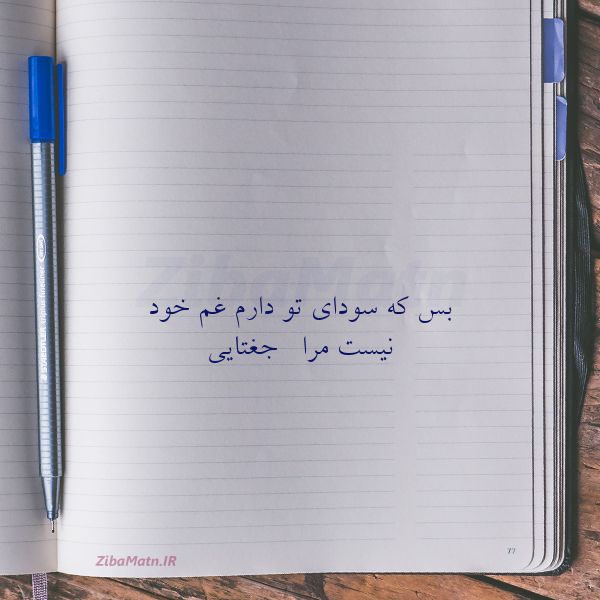 ZibaMatn
بس که سودای تو دارم غم خود
نیست مرا جغتایی
ZibaMatn.IR
77